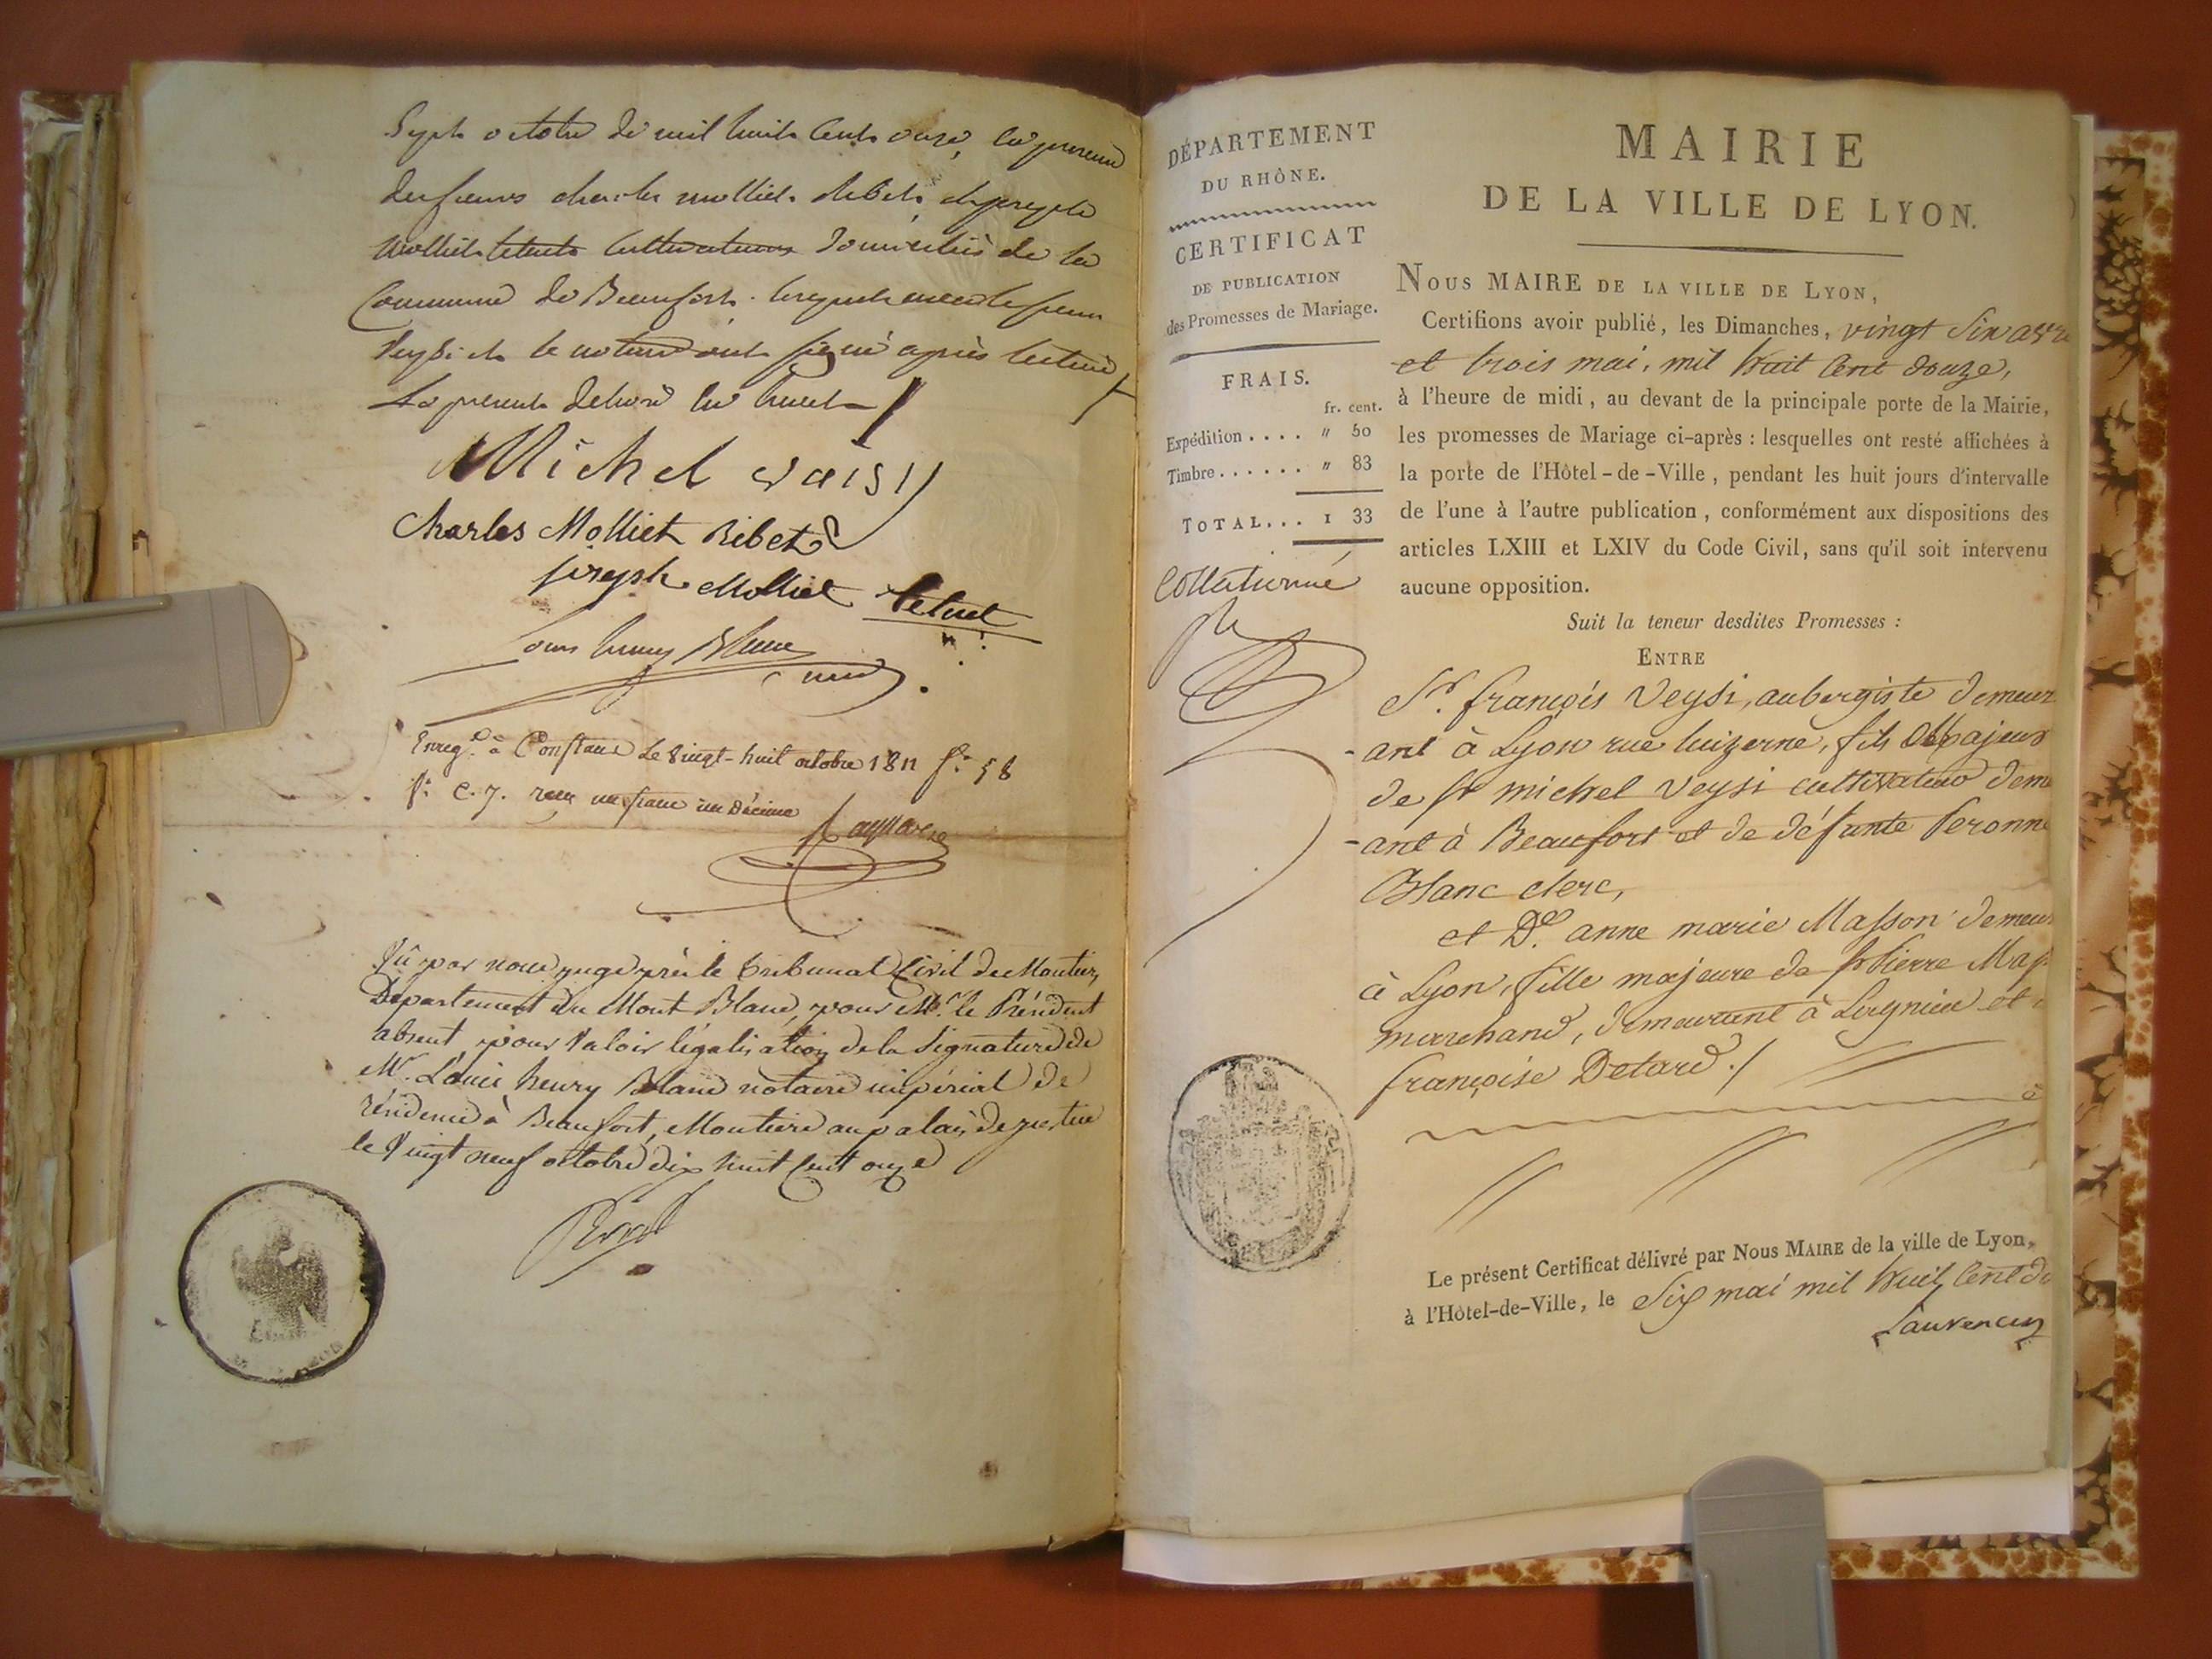 Sept octobre de mil huit cent onze, en presence
des sieurs charles molliet Ribet, et joseph
Molliet letuet cultivateurs domiciliés de la
Commune de Beaufort. lesquels avec le sieur
Veysi et le notaire ont signé après lecture
Michel vaisy
Charles Molliet Ribet
joseph Molliet letuet
Louis henry Blanc
Enreg.é à Conflans le vingt-huit octobre 1811 f.º 58
c. 7. reçu un franc un Décime
Vû par nous juge près le tribunal Civil de Moutiers,
Département du Mont Blanc, pour M.r le Président
absent, pour valoir légalisation de la signature de
M.r Louis henry Blanc notaire impérial de
résidence à Beaufort, Moutiers au palais de justice
le vingt neuf octobre dix huit cent onze
DÉPARTEMENT
DU RHÔNE.
CERTIFICAT
DE PUBLICATION
des Promesses de Mariage.
FRAIS.
fr. cent.
Expédition.... " 50
Timbre...... " 83
TOTAL... 1 33
Collationné
MAIRIE
DE LA VILLE DE LYON.
NOUS MAIRE DE LA VILLE DE LYON,
Certifions avoir publié, les Dimanches, vingt Six avri
et trois mai, mil huit Cent douze,
à l'heure de midi, au devant de la principale porte de la Mairie,
les promesses de Mariage ci-après : lesquelles ont resté affichées à
la porte de l'Hôtel-de-Ville, pendant les huit jours d'intervalle
de l'une à l'autre publication, conformément aux dispositions des
articles LXIII et LXIV du Code Civil, sans qu'il soit intervenu
aucune opposition.
Suit la teneur desdites Promesses :
ENTRE
S.r françois Veysi, aubergiste demeur
-ant à Lyon rue luizerne, fils Majeur
de sr michel Veysi cultivateur deme
-ant à Beaufort et de défunte Peronne
Blanc clerc,
et D.lle anne marie Masson demeur
à Lyon, fille majeure de sr Pierre Mass
marchand, demeurant à Lagnieu et
françoise Detard./
Le présent Certificat délivré par Nous MAIRE de la ville de Lyon,
à l'Hôtel-de-Ville, le Six mai mil huit Cent do
Laurencin